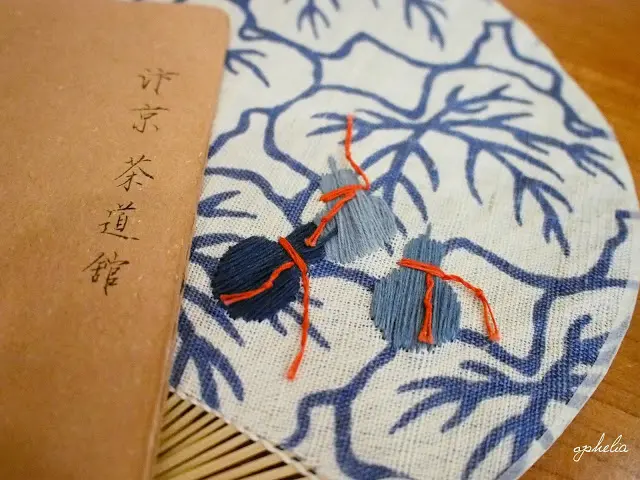 汴京茶道館
ophelia